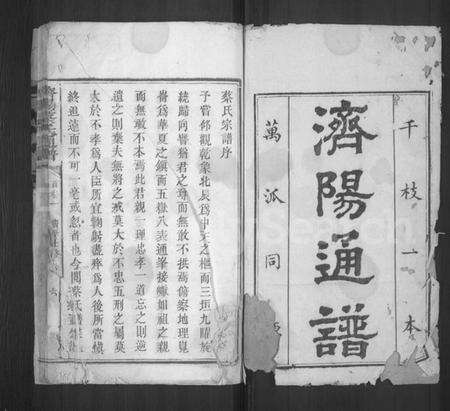 千枝一本
濟陽通譜
萬派同
蔡氏宗譜序
予嘗仰觀乾象北辰為中天之樞而三垣九曜旋
繞歸向譬猶君之尊而無敢不抵焉俯察地理崑
崙為華夏之鎮而五嶽八表通筆接猶如祖之親
而無敢不本焉此君親一理忠孝一道忘之則逆
遺之則棄夫無將之戒莫大於不忠五刑之屬莫
大於不孝為人臣所宜鞠躬盡瘁為人後所當慎
終追遠而不可一毫或忽者也今閱蔡氏